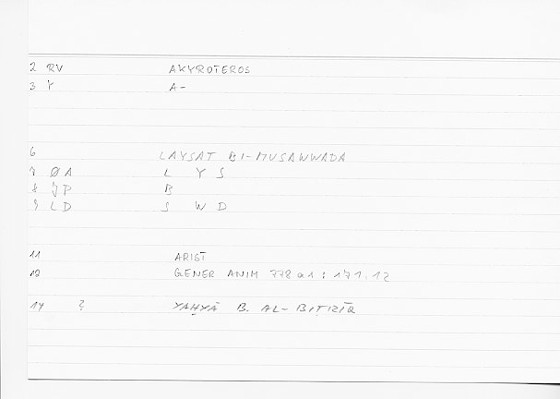 2 RV AKYROTEROS
3 Y A-
6 LAYSAT BI-MUSAWWADA
7 ØA L Y S
8 JP B
9 LD S W D
11 ARIST
12 GENER ANIM 778 a1 : 171.12
14 ? YAḤYĀ B. AL-BIṬRĪQ